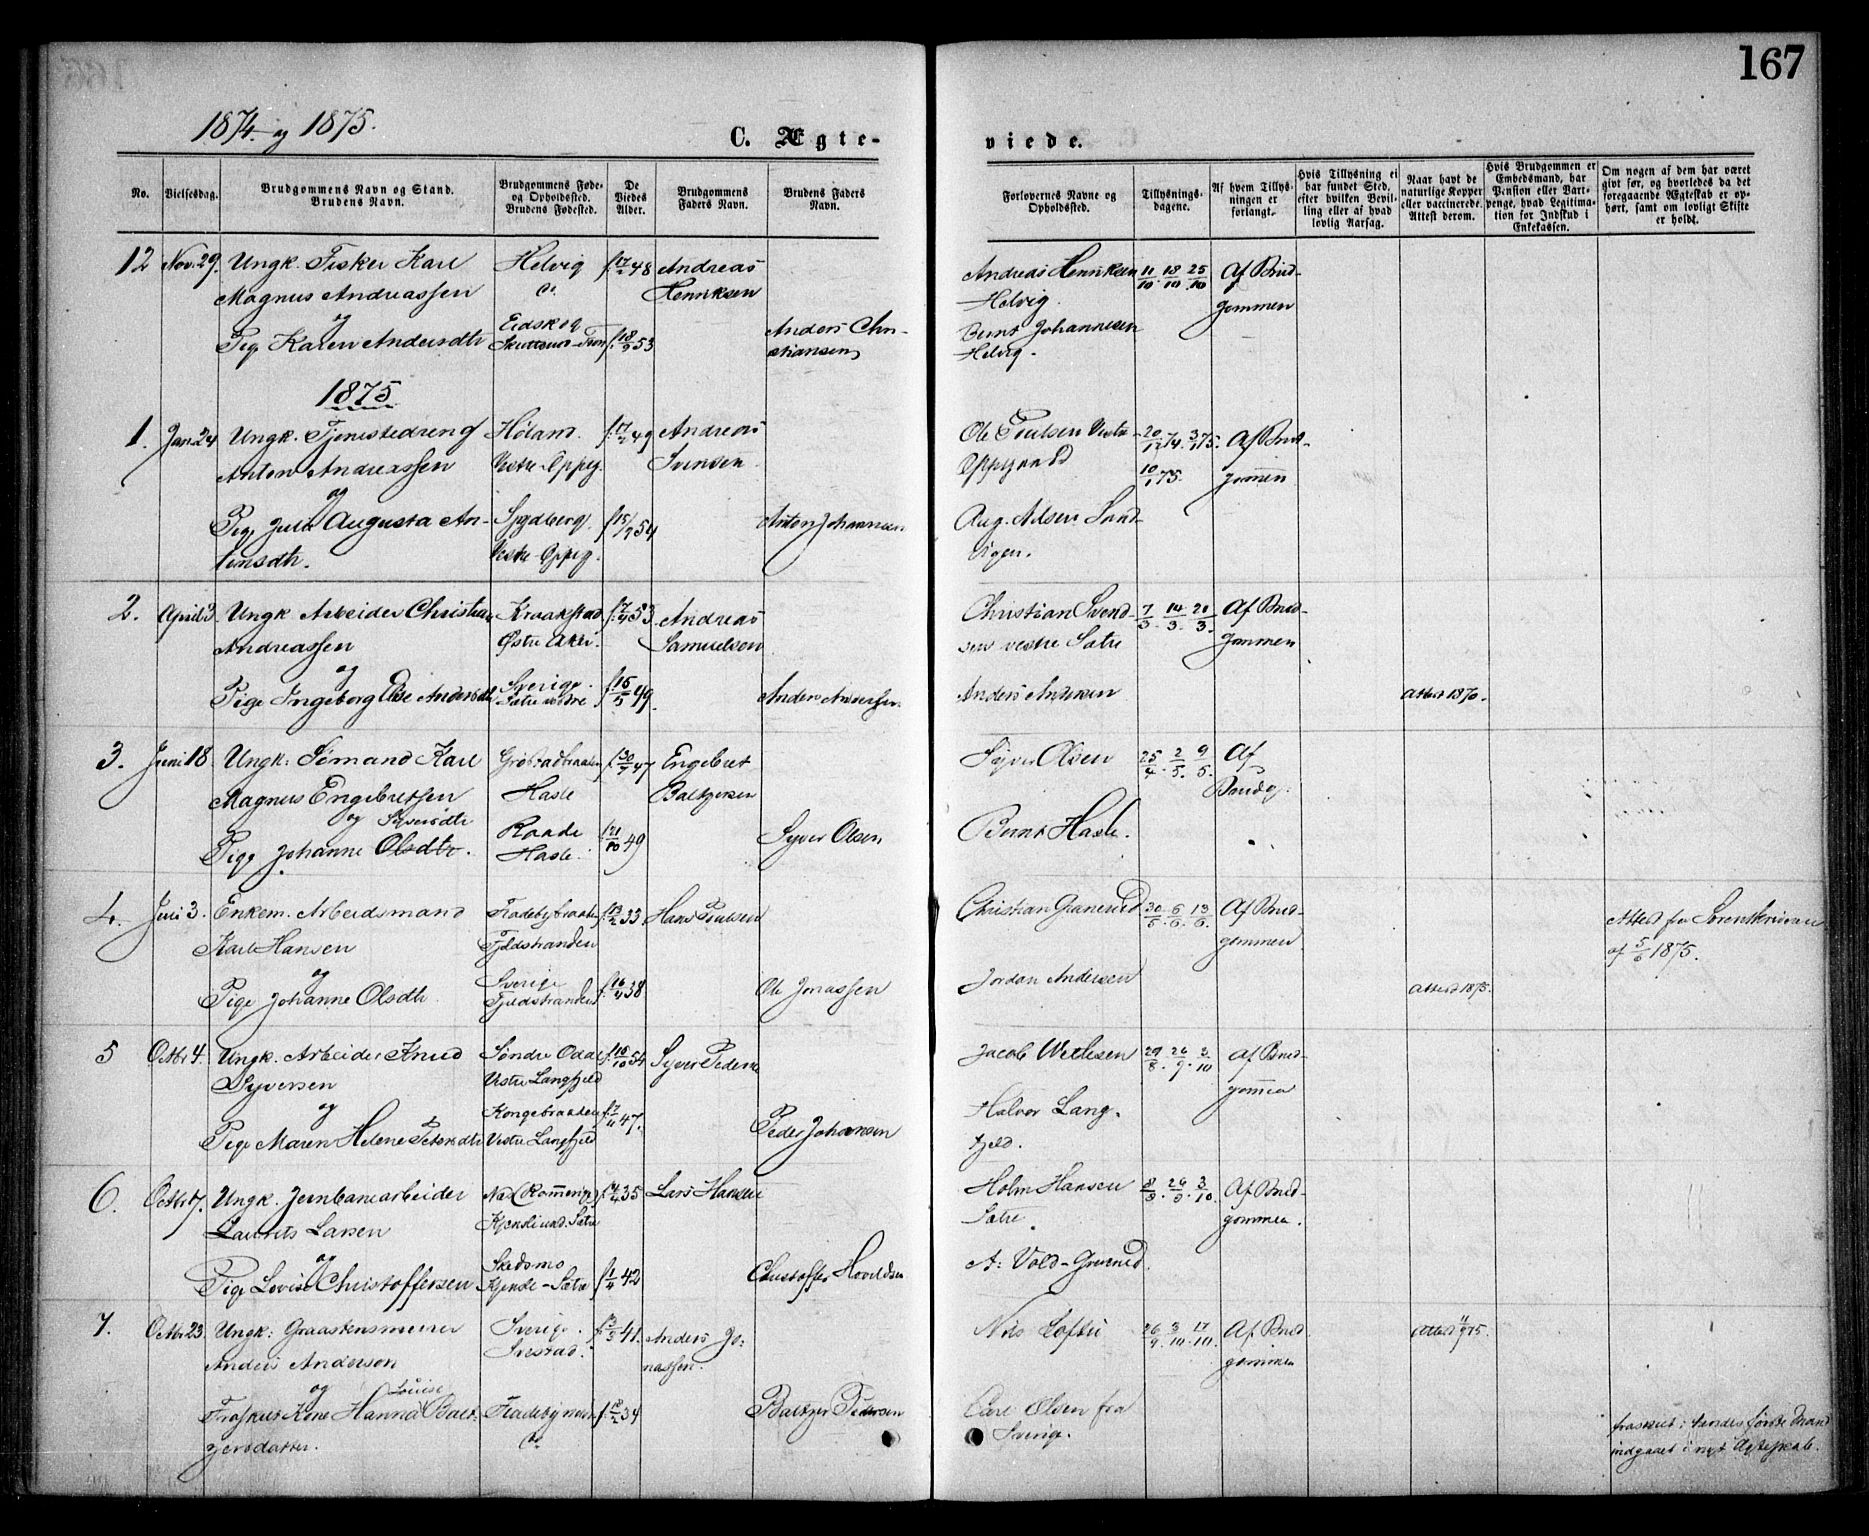 167
1874 og 1875.
C. Ægte-
viede.
No.
Vielsesdag.
Brudgommens Navn og Stand.
Brudens Navn.
Brudgommens Føde-
og Opholdssted.
Brudens Fødested.
De
Viedes
Alder.
Brudgommens
Faders Navn.
Brudens Faders
Navn.
Forlovernes Navne og
Opholdssted.
Tillysnings-
dagene.
Af hvem Tillys-
ningen er
forlangt.
Hvis Tillysning ei
har fundet Sted,
efter hvilken Bevil-
ling eller af hvad
lovlig Aarsag.
Naar havt de
naturlige Kopper
eller vaccinerede.
Attest derom.
Hvis Brudgommen er
Embedsmand, har
Pension eller Vart-
penge, hvad Legitima-
tion for Indskud i
Enkekassen.
Om nogen af dem har været
givt før, og hvorledes da det
foregaaende Ægteskab er op-
hørt, samt om lovligt Skifte
er holdt.
12 Nov. 29. Ungk. Fisker Karl Helvig f. 17/2 48 Andreas
Magnus Andreassen do Henriksen
og
Pige Karen Andersdtr Eidskog f. 18/9 53 Anders Chri-
stiansen
Andreas Henriksen 11/10. 18/10. 25/10 Af Brud-
Helvig. gommen
Bernt Johannesen
Helvig.
1875
1. Jan. 24 Ungk. Tjenestedreng Høland. f. 17/2 49 Andreas
Anton Andreassen Vestre Oppeg. Svensen
og
Pige Julie Augusta An- Spydberg. f. 15/9 54 Anton Johannesen
tonsdtr. Vestre Oppeg.
Ole Poulsen Vestre 20/12 74. 3/1 75. Af Brud-
Oppegaard 10/1 75. gommen
Aug. Nilsen Sand-
vigen.
2. April 3 Ungk Arbeider Christian Kraakstad f. 7/4 53 Andreas
Andreassen Østre Samuelsen
og
Pige Ingeborg Elise Andersdtr Sverige. f. 16/5 49. Anders Andersen
Sætre vestre
Christian Svend- 7/3. 14/3. 21/3. Af Brud-
sen vestre Sætre gommen
Anders Andersen Attest 1870.
3. Juni 18 Ungk: Sømand Karl f. 30/7 47 Engebret
Magnus Engebretsen Hasle Baltzersen
og Syversdtr
Pige Johanne Olsdtr. Raade f. 21/10 49 Syver Olsen
Hasle.
Syver Olsen 25/4. 2/5. 9/5. Af
Brudg.
Bernt Hasle.
4. Juli 3. Enkem. Arbeidsmand Fladebybraaten f. 13/2 33 Hans Poulsen
Karl Hansen Fjeldstranden
og
Pige Johanne Olsdtr. Sverige f. 16/4 38 Ole Jonassen
Fjeldstranden
Christian Granerud 30/5. 6/6. 13/6. Af Brud- Attest fra Sorenskriveren
gommen af 5/6 1875.
Jordan Andersen Attest 1875.
5 Octbr 4. Ungk. Arbeider Knud Søndre Odal f. 16/10 54 Syver Pedersen
Syversen Vestre Langfjeld
og
Pige Maren Helene Petersdtr Kongebraaten f. 7/11 47. Peder Johansen
Vestre Langfjeld
Jacob Wetlesen 29/8. 26/9. 3/10 Af Brud-
gommen
Halvor Lang-
fjeld.
6. Octbr 17. Ungk. Jernbanearbeider Næs (Romerige) f. 4/4 35 Lars Hansen
Laurits Larsen Sætre
og
Pige Lovise Christoffersen Skedsmo f. 1/4 42 Christoffer
Sætre
Holm Hansen 8/8. 26/9. 3/10. Af Brud-
Sætre. gommen.
A. Vold - Granerud.
7. Octbr 23. Ungk: Graastensmurer Sverige. f. 13/9 41. Anders Jo-
Anders Anderson nassen.
og Louise
Fraskilt Kone Hanna Balt- f. 18/2 34 Baltzer Pedersen
zersdatter. do
Nils 26/9. 3/10. 17/10. Af Brud Attest 11/9 75.
gommen
Carl Olsen fra
Sverige.
fraskilt; hendes første Mand
indgaaet i nyt Ægteskab.